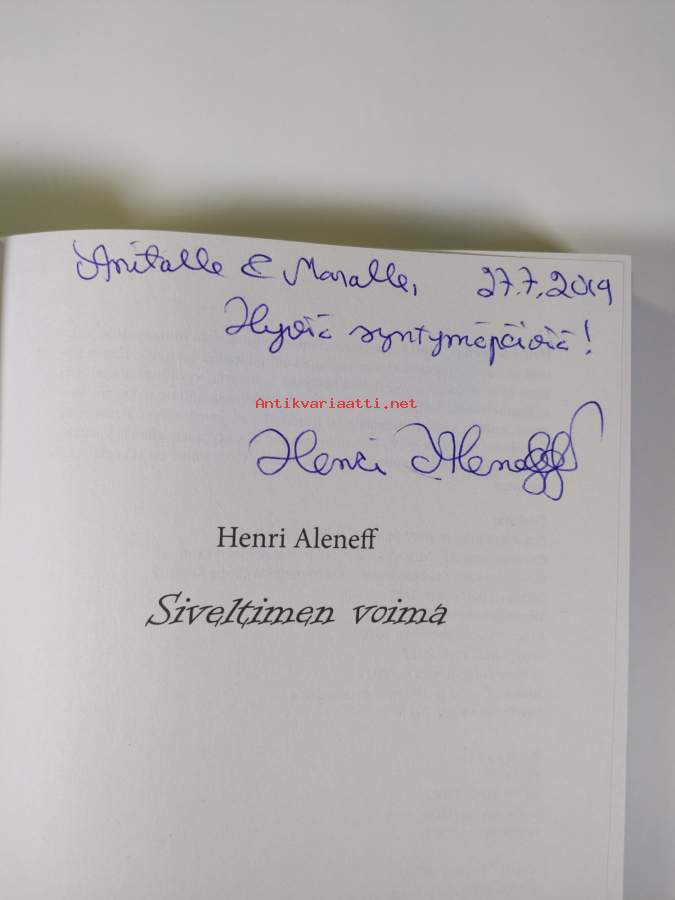 Anitalle & Maralle, 27.7.2019
Hyviä syntymäpäiviä!
Antikvariaatti.net
Henri Aleneff
Henri Aleneff
Siveltimen voima